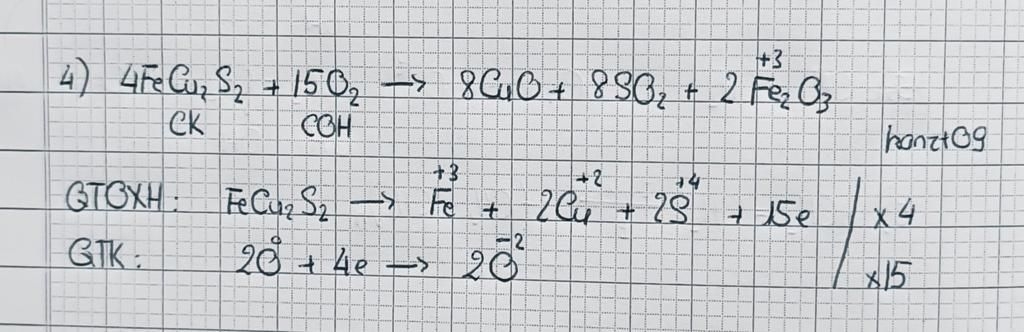 4) 4FeCu₂S₂ + 15O₂ → 8CuO + 8SO₂ + 2Fe₂⁺³O₃
CK COH
hanzt09
QTOXH: FeCu₂S₂ → Fe⁺³ + 2Cu⁺² + 2S⁺⁴ + 15e | x4
QTK: 2O⁰ + 4e → 2O⁻² | x15